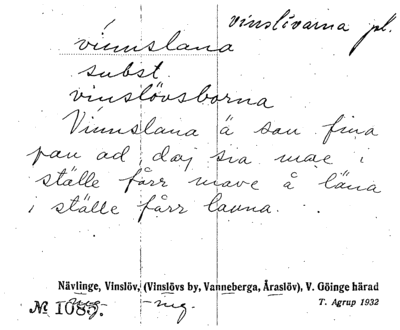 vinslívarna pl.
vinnslana
subst.
vinslövsborna
Vinnslana ä san fina
pau ad, daj sia mae i
ställe fårr mave å läna
i ställe fårr launa.
Nävlinge, Vinslöv, (Vinslövs by, Vanneberga, Äraslöv), V. Göinge härad
T. Agrup 1932
№ 1085.
mg.